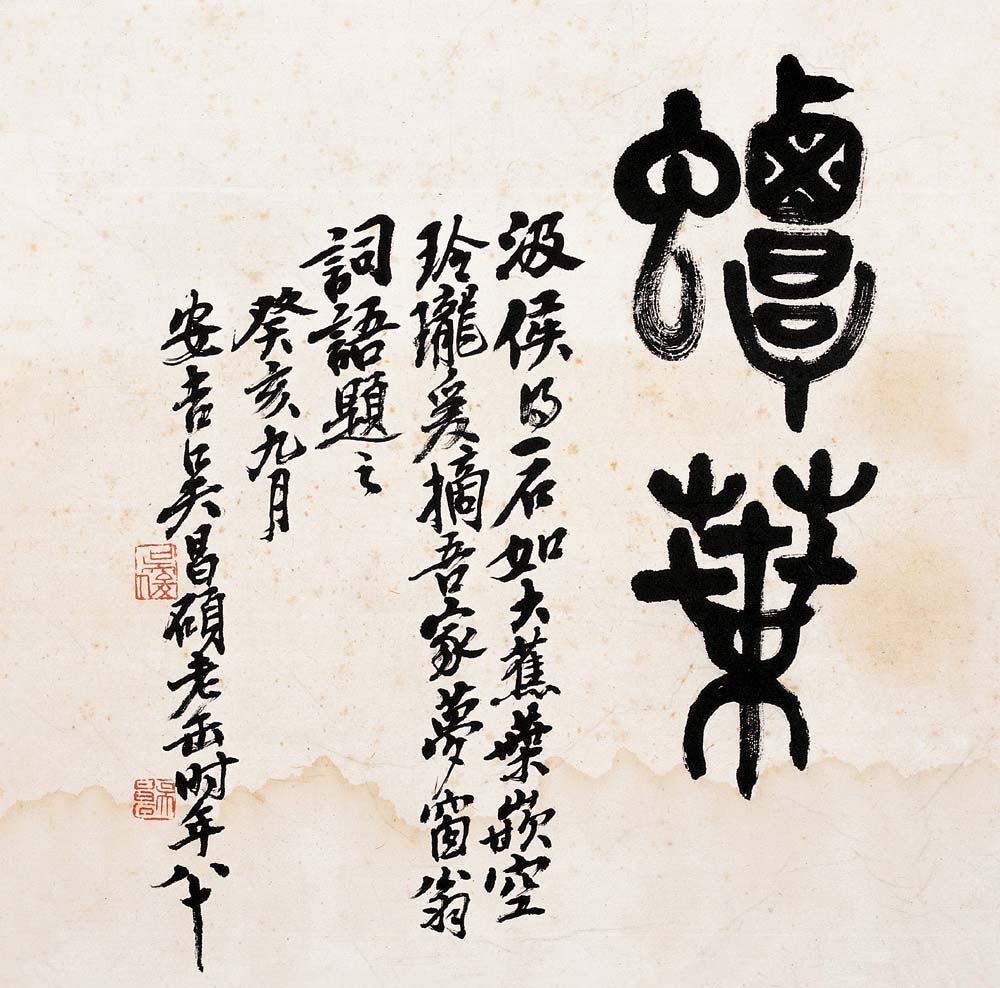 蟫葉
汲侯得一石如大蕉葉嵌空
玲瓏爰摘吾家夢窗翁
詞語題之
癸亥九月
安吉吳昌碩老缶时年八十